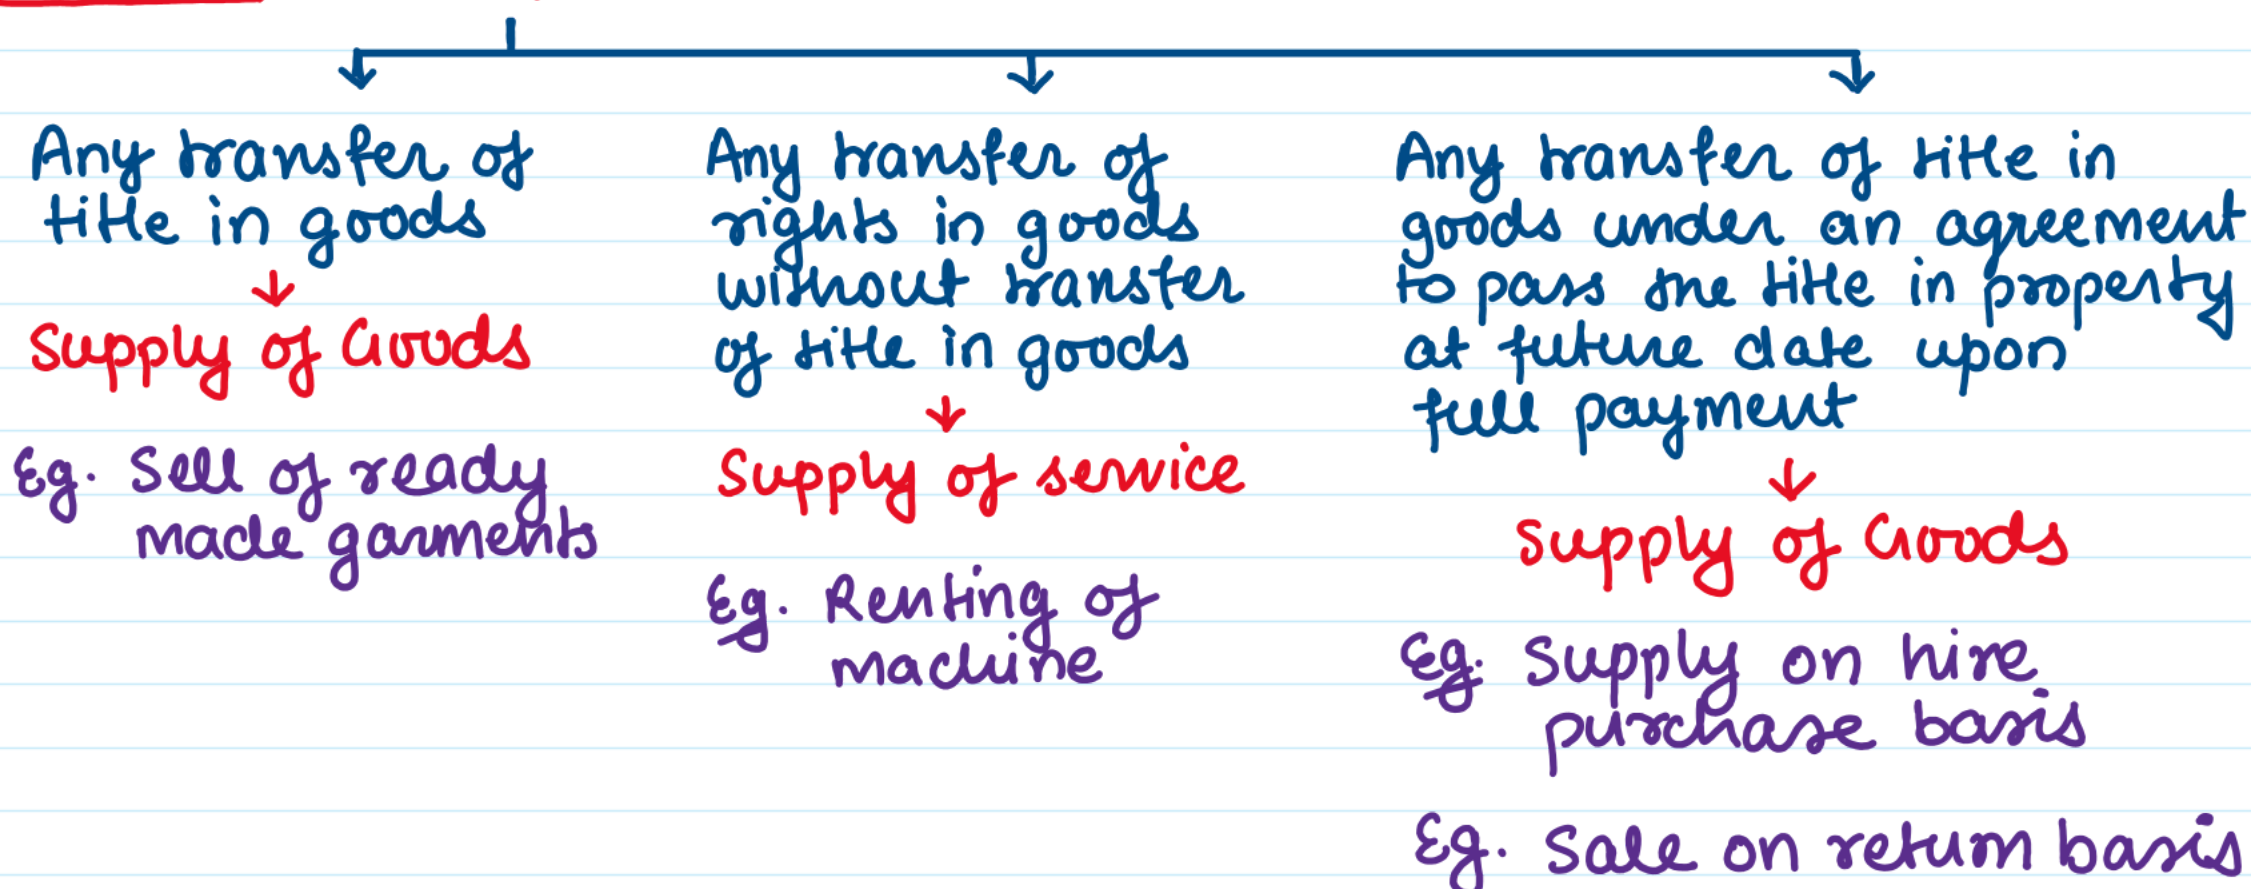 Any transfer of
title in goods
Supply of Goods
Eg. Sell of ready
made garments
Any transfer of
rights in goods
without transfer
of title in goods
Supply of service
Eg. Renting of
machine
Any transfer of title in
goods under an agreement
to pass the title in property
at future date upon
full payment
Supply of Goods
Eg. Supply on hire
purchase basis
Eg. Sale on return basis